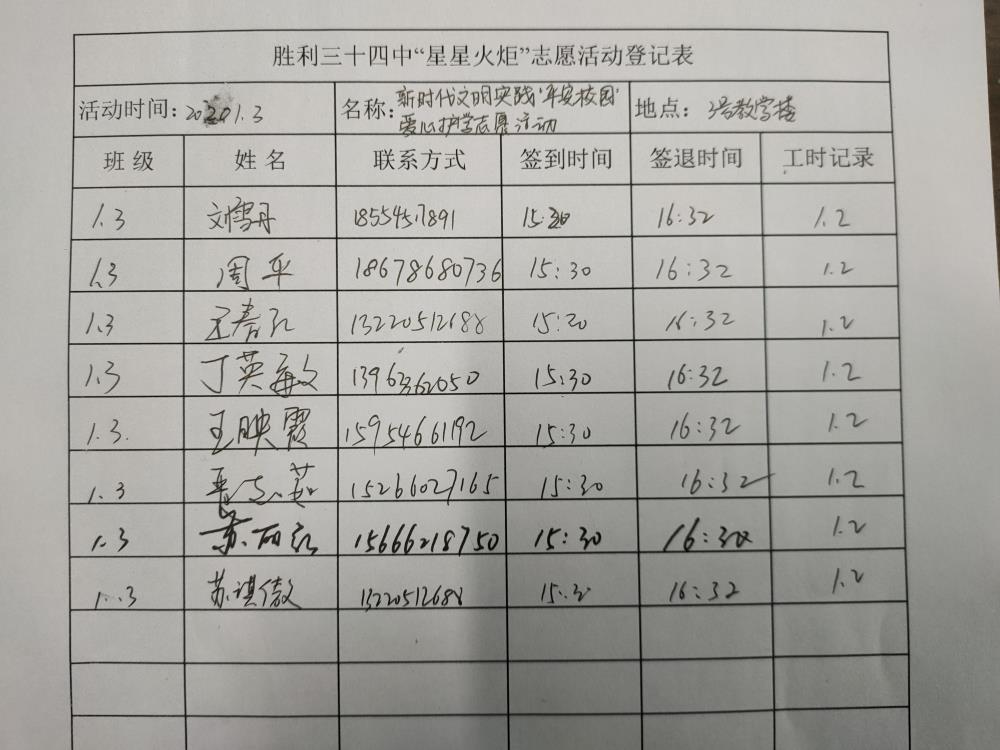 胜利三十四中“星星火炬”志愿活动登记表
活动时间: 名称: 新时代文明实践“平安校园” 地点: 2号教学楼
爱心护学志愿活动
班级 姓名 联系方式 签到时间 签退时间 工时记录
1.3 刘雪丹 18554517891 15:30 16:32 1.2
1.3 周平 18678680736 15:30 16:32 1.2
1.3 13220512688 15:30 16:32 1.2
1.3 丁英敏 15:30 16:32 1.2
1.3. 王映霞 15954661192 15:30 16:32 1.2
1.3 15266027165 15:30 16:32 1.2
1.3 苏丽红 15666218750 15:30 16:32 1.2
1.3 苏祺傲 13220512688 15:30 16:32 1.2